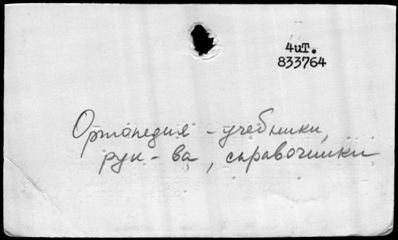 4иТ.
833764
Ортопедия - учебники,
рук - ва, справочники